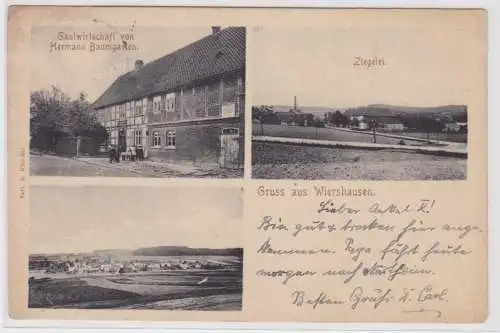 Gastwirtschaft von
Hermann Baumgarten.
Ziegelei.
Gruss aus Wiershausen.
Lieber Onkel K!
Bin gut & trocken hier ange-
kommen. fährt heute
morgen nach
Besten Gruß D. Carl.
Verl. R.